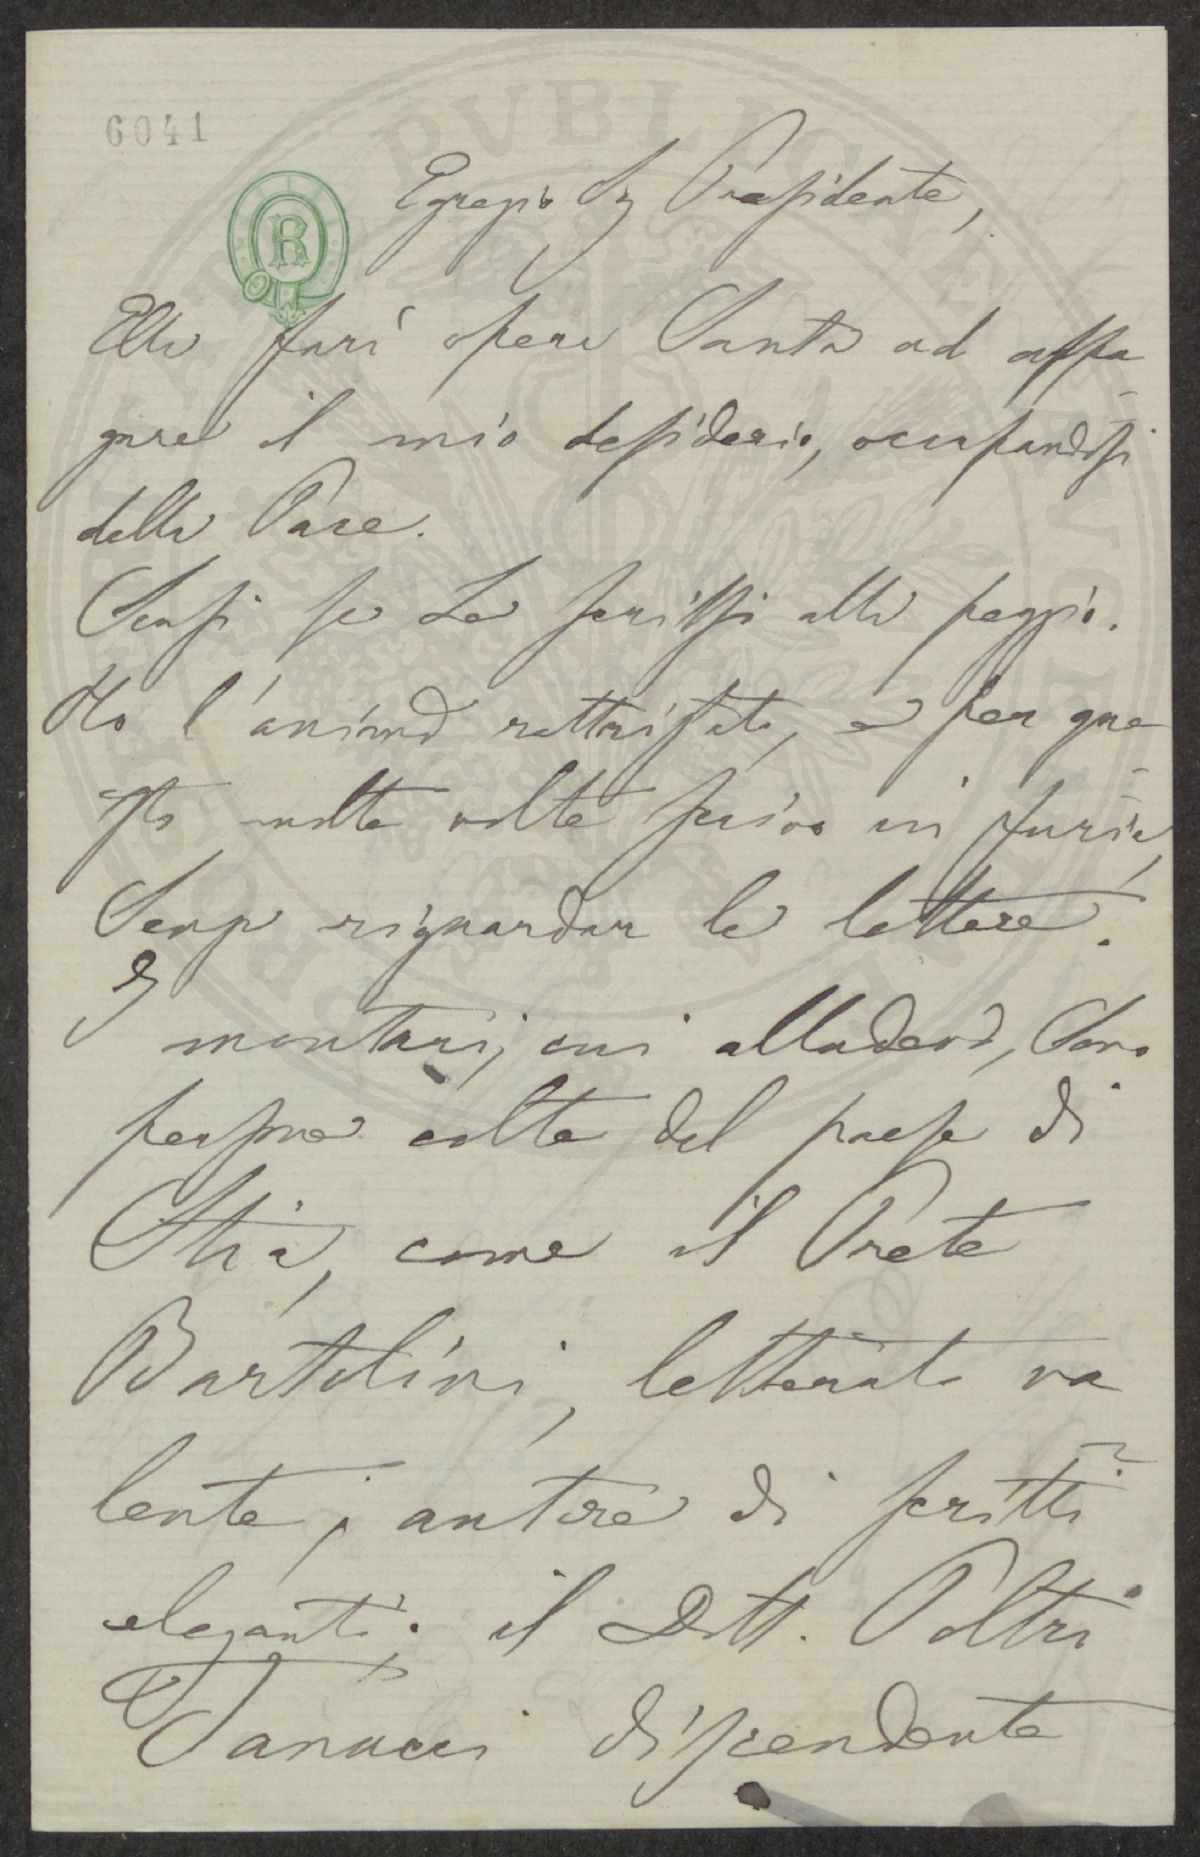 6041
R
Egregio Sig Presidente,
Ella farà opera Santa ad appa
gare il mio desiderio, occupandosi
della Pace.
Scusi se Le scrissi alla peggio.
Ho l'animo rattristato, e per que
sto molte volte scrivo in furia,
Senza riguardar le lettere.
I montanini, cui alludevo, Sono
persone colte del paese di
Stia, come il Prete
Bartolini, letterato va
lente, autore di scritti
eleganti; il Dott. Poltri
Tanucci discendente